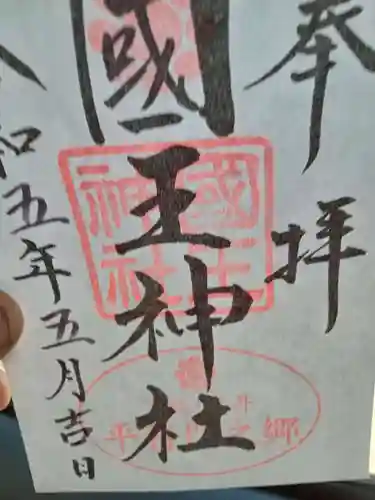 奉拝
國王神社
令和五年五月吉日
國王神社